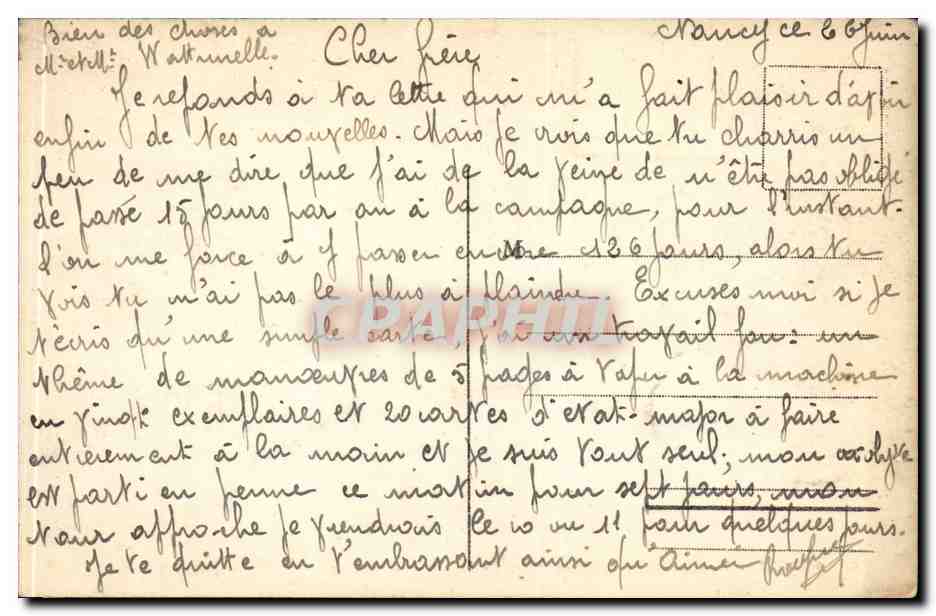 Bien des choses à
Mr et Me Wattrinelle.
Nancy ce 26 Juin
Cher frère
Je réponds à ta lettre qui m'a fait plaisir d'avoir
enfin de tes nouvelles. Mais je vois que tu charris un
peu de me dire que j'ai de la veine de n'être pas obligé
de passé 15 jours par an à la campagne, pour l'instant
l'on me force à y passer encore 126 jours, alors tu
vois tu n'ai pas le plus à plaindre. Excuses moi si je
t'écris qu'une simple carte, j'ai un travail fou: un
thème de manœuvres de 5 pages à taper à la machine
en vingt exemplaires et 20 cartes d'état-major à faire
entièrement à la main et je suis tout seul; mon
est parti en perme ce matin pour sept jours, mon
tour approche je viendrais le 10 ou 11 pour quelques jours.
Je te quitte en t'embrassant ainsi qu'Aimée
CPAPHIL
M